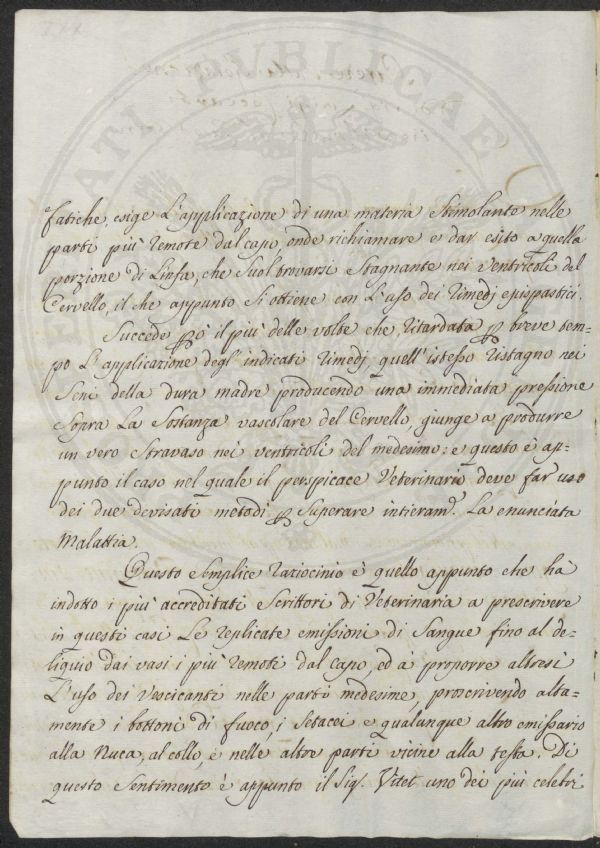 fatiche, esige L'applicazione di una materia Stimolante nelle
parti più remote dal capo, onde richiamare e dar esito a quella
porzione di Linfa, che Suol trovarsi Stagnante nei ventricoli del
Cervello, il che appunto Si ottiene con L'uso dei rimedj epispastici.
Succede però il più delle volte che, ritardata per breve tem-
po L'applicazione degl'indicati rimedj quell'istesso ristagno nei
Seni della dura madre producendo una immediata pressione
Sopra La Sostanza vascolare del Cervello, giunge a produrre
un vero Stravaso nei ventricoli del medesimo: e questo è ap-
punto il caso nel quale il perspicace Veterinario deve far uso
dei due devisati metodi per Superare intieram. La enunciata
Malattia.
Questo Semplice raziocinio è quello appunto che hà
indotto i più accreditati Scrittori di Veterinaria a prescrivere
in questi casi Le replicate emissioni di Sangue fino al de-
liquio dai vasi i più remoti dal capo, ed à proporre altresì
L'uso dei vescicanti nelle parti medesime, proscrivendo alta-
mente i bottoni di fuoco, i Setacei e qualunque altro emissario
alla Nuca, al collo, e nelle altre parti vicine alla testa. Di
questo Sentimento è appunto il Sig. Vitet uno dei più celebri
PUBLICAE